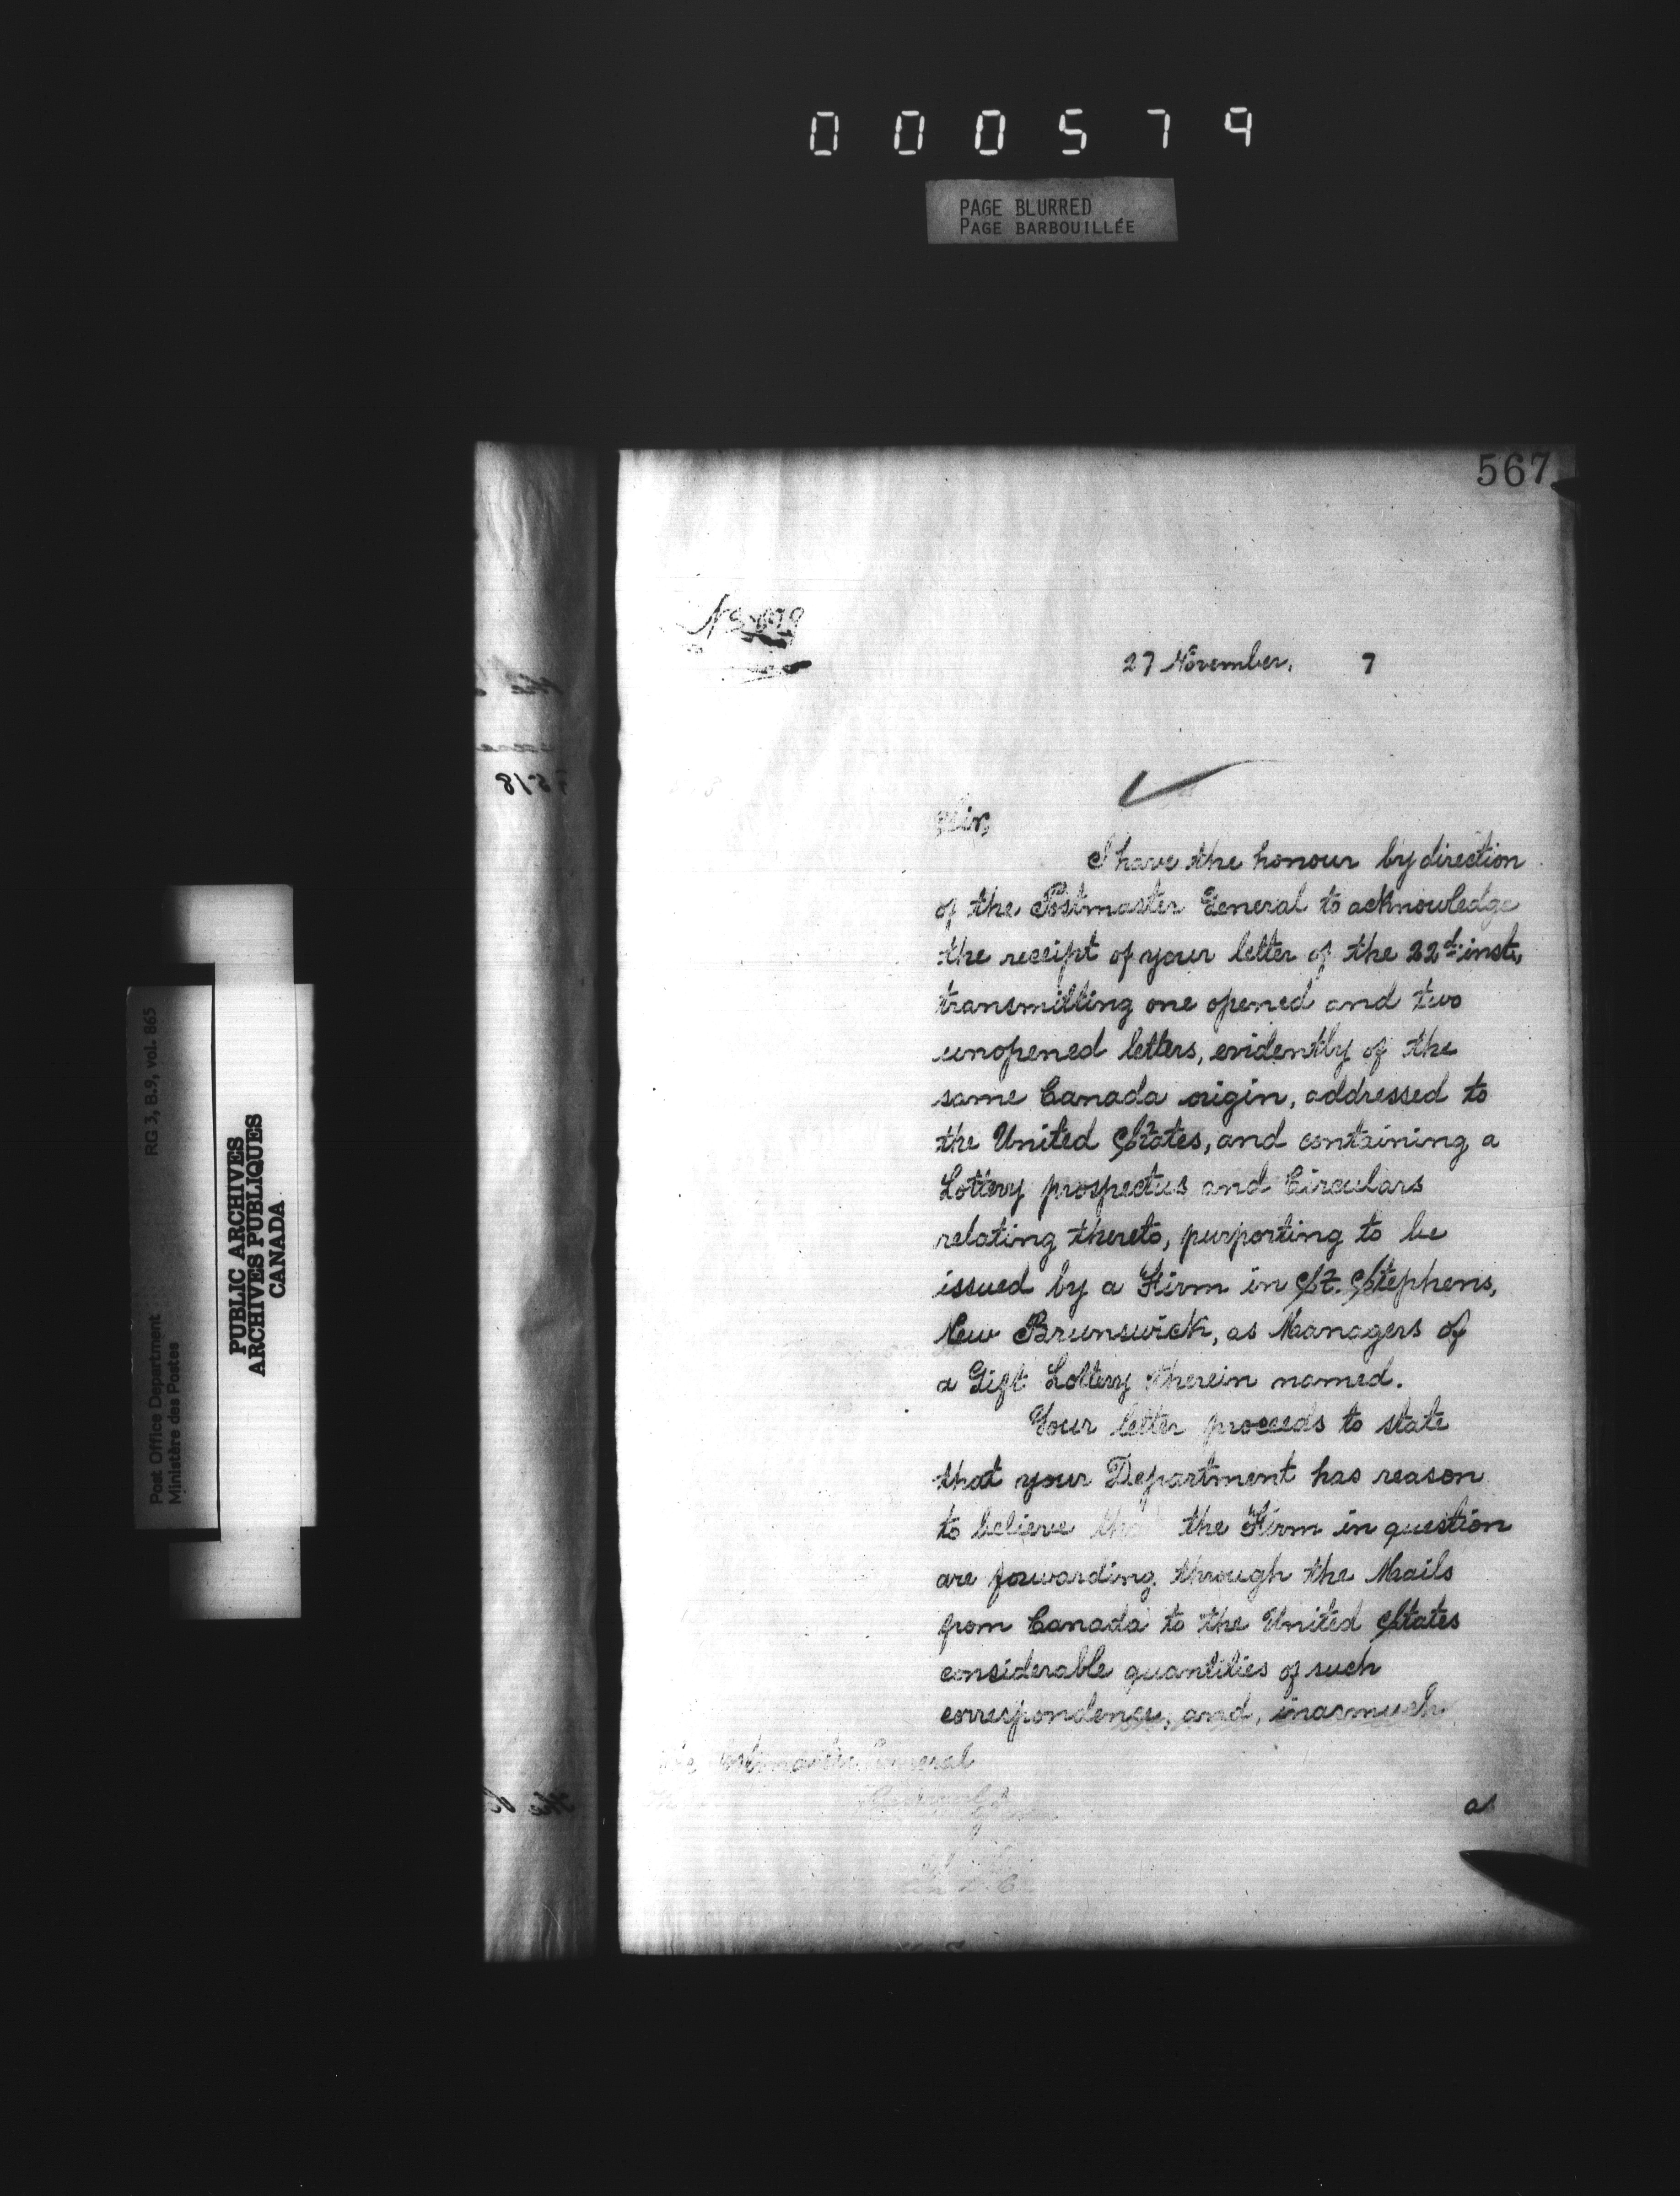 000579
PAGE BLURRED
PAGE BARBOUILLÉE
567
27 November, 7
Sir,
I have the honour by direction
of the Postmaster General to acknowledge
the receipt of your letter of the 22d. inst.,
transmitting one opened and two
unopened letters, evidently of the
same Canada origin, addressed to
the United States, and containing a
Lottery prospectus and Circulars
relating thereto, purporting to be
issued by a Firm in St. Stephens,
New Brunswick, as Managers of
a Gift Lottery therein named.
Your letter proceeds to state
that your Department has reason
to believe that the Firm in question
are forwarding through the Mails
from Canada to the United States
considerable quantities of such
correspondence, and, inasmuch
Postmaster General
as
RG 3, B.9, vol. 865
Post Office Department
Ministère des Postes
PUBLIC ARCHIVES
ARCHIVES PUBLIQUES
CANADA